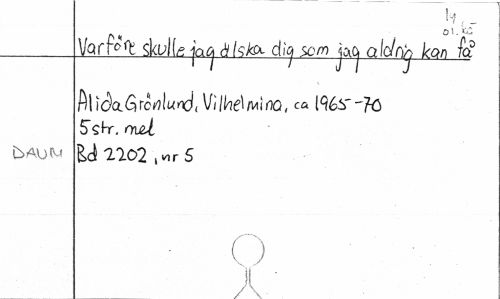 14
Varföre skulle jag älska dig som jag aldrig kan få
Alida Grönlund, Vilhelmina, ca 1965-70
5 str. mel
DAUM Bd 2202, nr 5